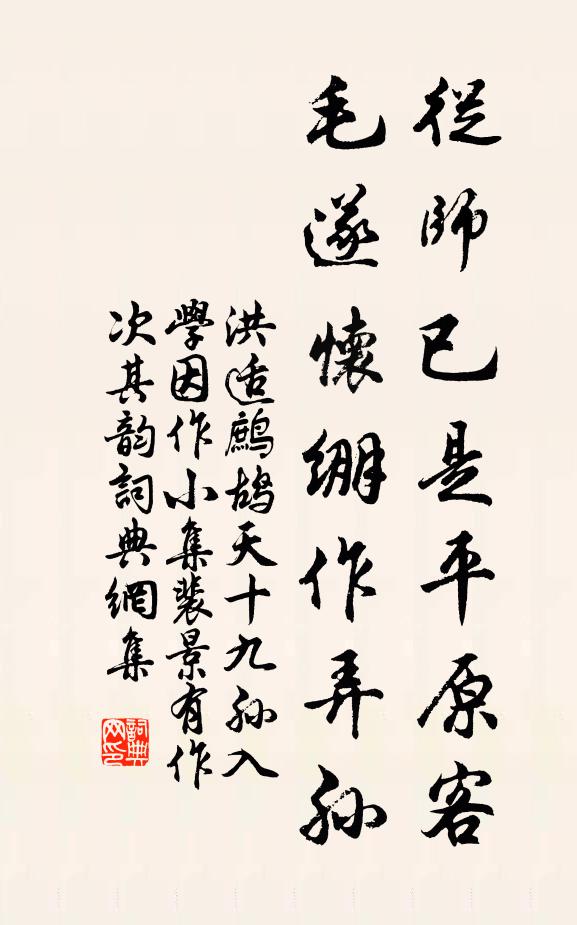 從師已是平原客
毛遂懷綳作弄孫
洪适鷓鴣天十九孫入
學因作小集裴景有作
次其韵詞典網集
詞典网印